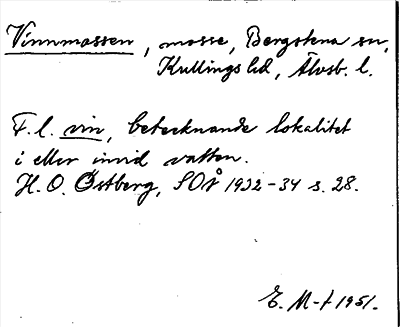 Vinnmossen, mosse, Bergstena sn,
Kullings hd, Älvsb. l.
F. l. vin, betecknande lokalitet
i eller invid vatten.
H. O. Östberg, SOÅ 1932-34 s. 28.
E. M-t 1951.